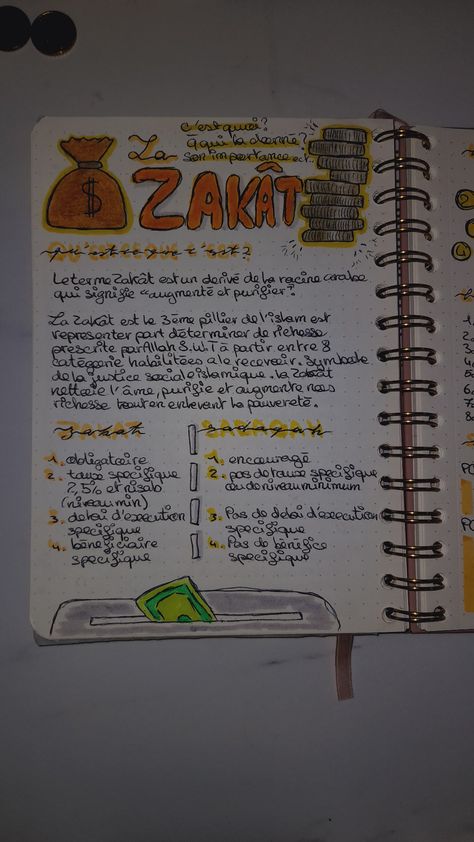 c'est quoi?
à qui la donné?
son importance ect.
La
ZAKÂT
$
Qu'est ce que c'est?
Le terme Zakât est un derivé de la racine arabe
qui signifie "augmenté et purifier".
La Zakât est le 3ème pillier de l'islam est
representer part déterminer de richesse
prescrite par Allah S.W.T à partir entre 8
catégorie habilitées a le recevoir. Symbole
de la justice social e islamique. La Zakât
nettoie l'âme, purifie et augmente nos
richesse tout en enlevant la pouvreté.
Zakat
Sadaqah
1. obligatoire
2. taux specifique
2,5% et nisab
(niveau min)
3. delai d'execution
specifique
4. bénéficiaire
specifique
1. encouragé
2. pas de taux specifique
ou de niveau minimum
3. Pas de delai d'execution
specifique
4. Pas de bénéfice
specifique